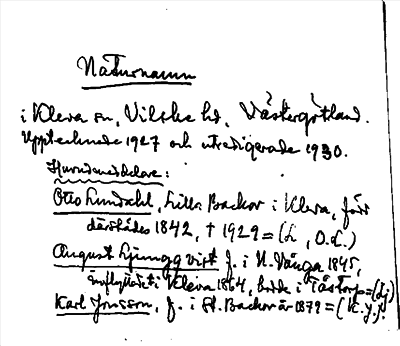 Naturnamn
i Kleva sn, Vilske hd, Västergötland.
Upptecknade 1927 och utredigerade 1930.
Huvudmeddelare:
Otto Lundahl, Lilla Backor i Kleva, född
därstädes 1842, † 1929 = (L, O.L.)
August Ljungqvist f. i N. Vånga 1845,
inflyttat i Kleva 1864, bodde i Tåstorp = (Lj)
Karl Jonsson, f. i St. Backor år 1879 = (K. J.)